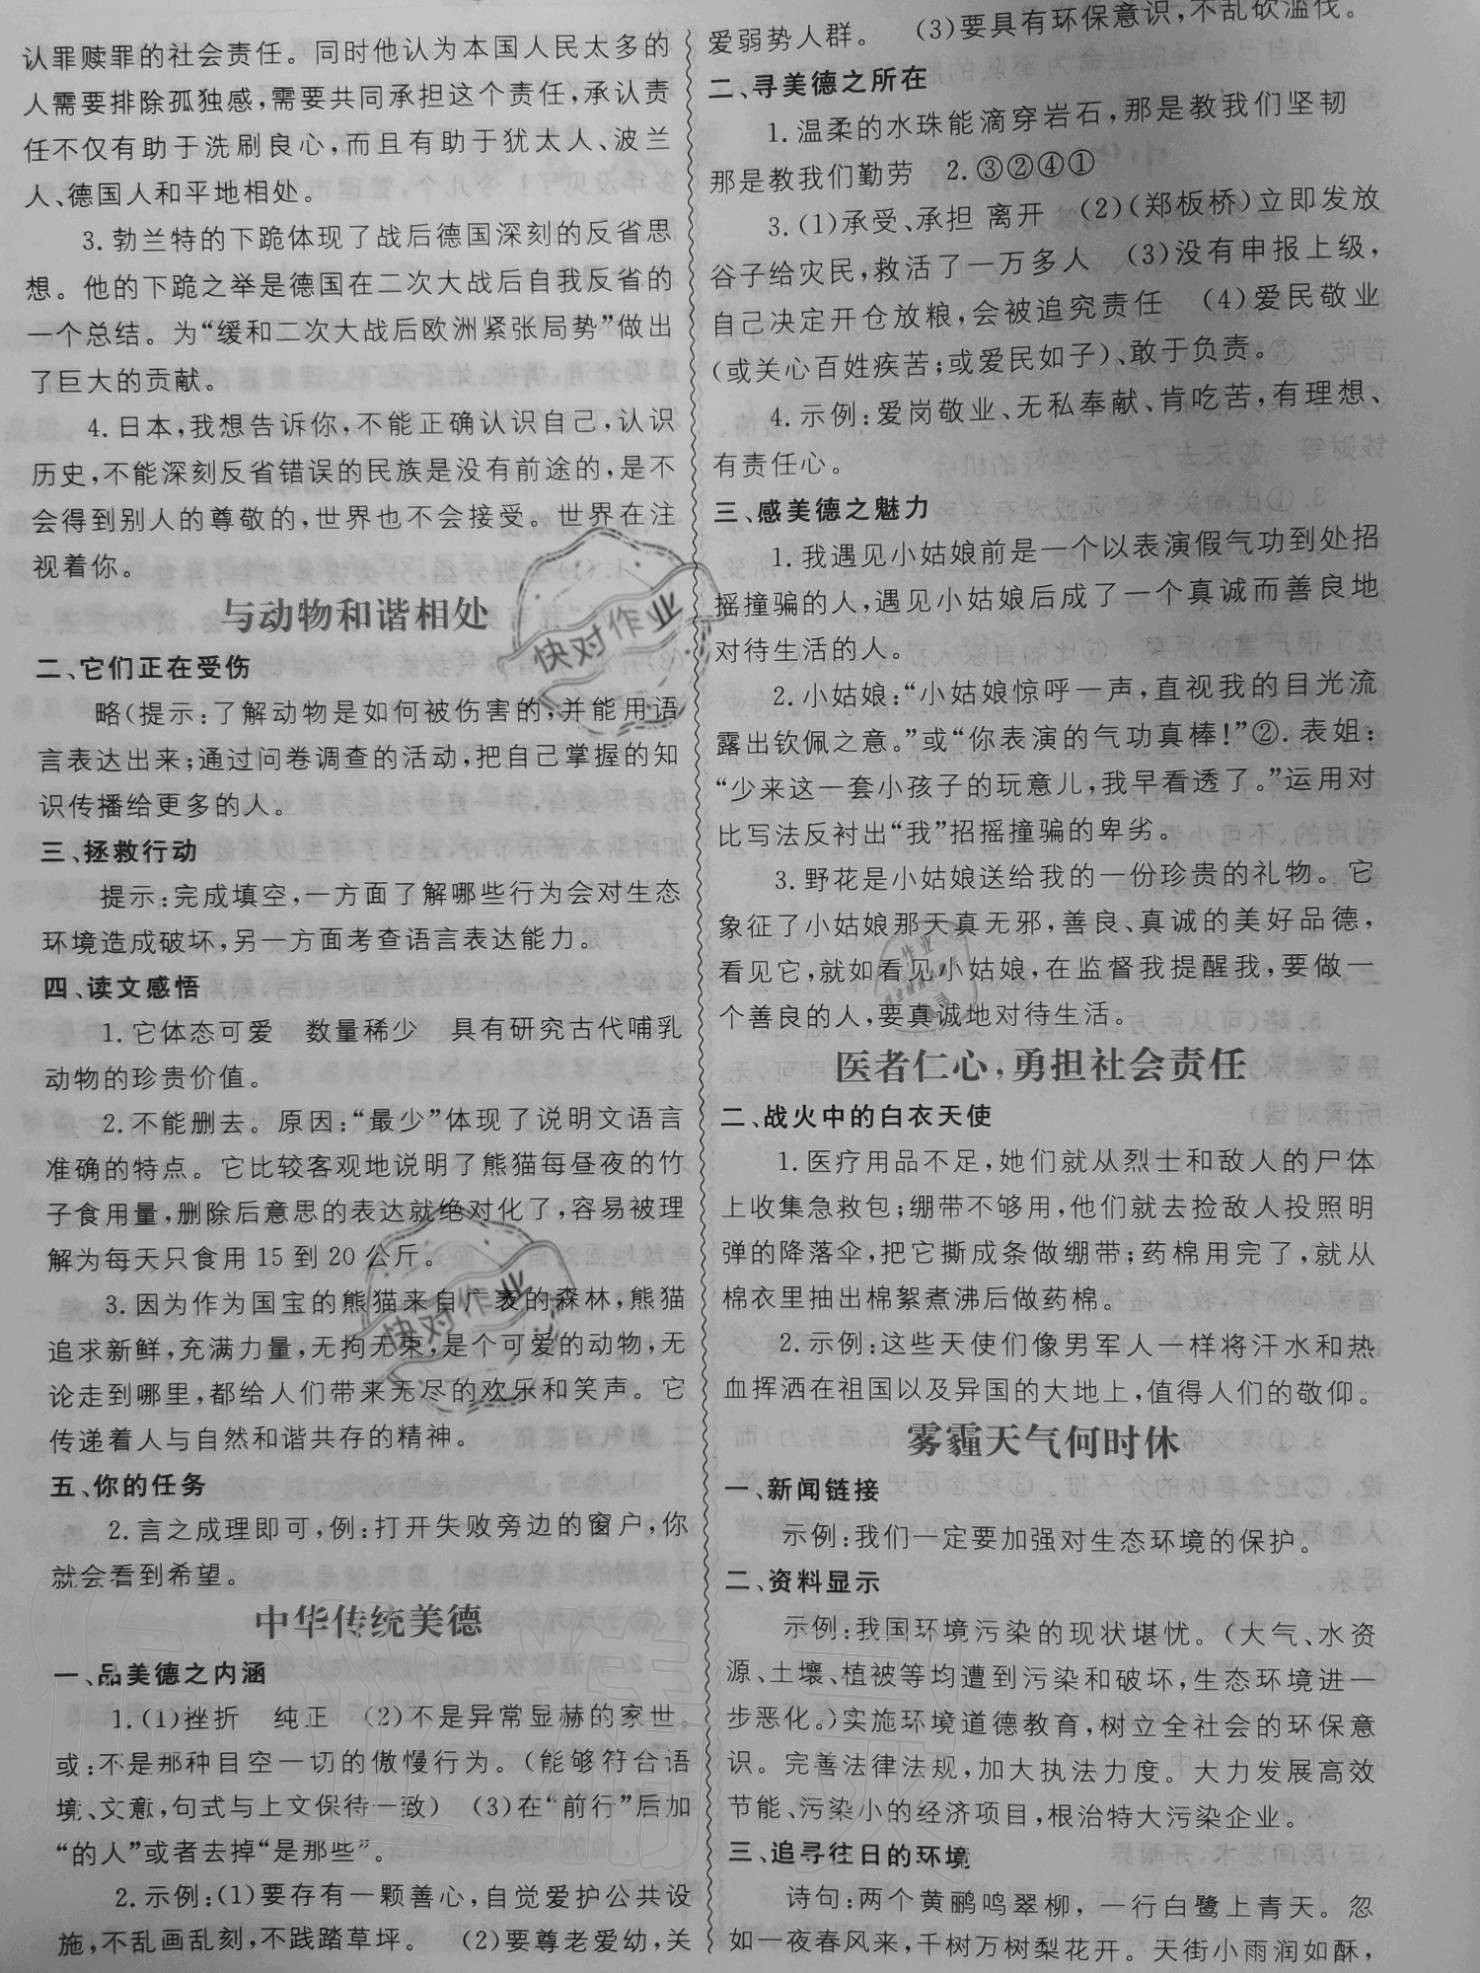 认罪赎罪的社会责任。同时他认为本国人民太多的
人需要排除孤独感,需要共同承担这个责任,承认责
任不仅有助于洗刷良心,而且有助于犹太人、波兰
人、德国人和平地相处。
3.勃兰特的下跪体现了战后德国深刻的反省思
想。他的下跪之举是德国在二次大战后自我反省的
一个总结。为“缓和二次大战后欧洲紧张局势”做出
了巨大的贡献。
4.日本,我想告诉你,不能正确认识自己,认识
历史,不能深刻反省错误的民族是没有前途的,是不
会得到别人的尊敬的,世界也不会接受。世界在注
视着你。
与动物和谐相处
二、它们正在受伤
略(提示:了解动物是如何被伤害的,并能用语
言表达出来;通过问卷调查的活动,把自己掌握的知
识传播给更多的人。
三、拯救行动
提示:完成填空,一方面了解哪些行为会对生态
环境造成破坏,另一方面考查语言表达能力。
四、读文感悟
1.它体态可爱 数量稀少 具有研究古代哺乳
动物的珍贵价值。
2.不能删去。原因:“最少”体现了说明文语言
准确的特点。它比较客观地说明了熊猫每昼夜的竹
子食用量,删除后意思的表达就绝对化了,容易被理
解为每天只食用15到20公斤。
3.因为作为国宝的熊猫来自广袤的森林,熊猫
追求新鲜,充满力量,无拘无束,是个可爱的动物,无
论走到哪里,都给人们带来无尽的欢乐和笑声。它
传递着人与自然和谐共存的精神。
五、你的任务
2.言之成理即可,例:打开失败旁边的窗户,你
就会看到希望。
中华传统美德
一、品美德之内涵
1.(1)挫折 纯正 (2)不是异常显赫的家世。
或:不是那种目空一切的傲慢行为。(能够符合语
境、文意,句式与上文保待一致) (3)在“前行”后加
“的人”或者去掉“是那些”。
2.示例:(1)要存有一颗善心,自觉爱护公共设
施,不乱画乱刻,不践踏草坪。 (2)要尊老爱幼,关
爱弱势人群。 (3)要具有环保意识,不乱砍滥伐。
二、寻美德之所在
1.温柔的水珠能滴穿岩石,那是教我们坚韧
那是教我们勤劳 2.③②④①
3.(1)承受、承担 离开 (2)(郑板桥)立即发放
谷子给灾民,救活了一万多人 (3)没有申报上级,
自己决定开仓放粮,会被追究责任 (4)爱民敬业
(或关心百姓疾苦;或爱民如子)、敢于负责。
4.示例:爱岗敬业、无私奉献、肯吃苦,有理想、
有责任心。
三、感美德之魅力
1.我遇见小姑娘前是一个以表演假气功到处招
摇撞骗的人,遇见小姑娘后成了一个真诚而善良地
对待生活的人。
2.小姑娘:“小姑娘惊呼一声,直视我的目光流
露出钦佩之意。”或“你表演的气功真棒!”②.表姐:
“少来这一套小孩子的玩意儿,我早看透了。”运用对
比写法反衬出“我”招摇撞骗的卑劣。
3.野花是小姑娘送给我的一份珍贵的礼物。它
象征了小姑娘那天真无邪,善良、真诚的美好品德,
看见它,就如看见小姑娘,在监督我提醒我,要做一
个善良的人,要真诚地对待生活。
医者仁心,勇担社会责任
二、战火中的白衣天使
1.医疗用品不足,她们就从烈士和敌人的尸体
上收集急救包;绷带不够用,他们就去捡敌人投照明
弹的降落伞,把它撕成条做绷带;药棉用完了,就从
棉衣里抽出棉絮煮沸后做药棉。
2.示例:这些天使们像男军人一样将汗水和热
血挥洒在祖国以及异国的大地上,值得人们的敬仰。
雾霾天气何时休
一、新闻链接
示例:我们一定要加强对生态环境的保护。
二、资料显示
示例:我国环境污染的现状堪忧。(大气、水资
源、土壤、植被等均遭到污染和破坏,生态环境进一
步恶化。)实施环境道德教育,树立全社会的环保意
识。完善法律法规,加大执法力度。大力发展高效
节能、污染小的经济项目,根治特大污染企业。
三、追寻往日的环境
诗句:两个黄鹂鸣翠柳,一行白鹭上青天。忽
如一夜春风来,千树万树梨花开。天街小雨润如酥,
快对作业
快对作业